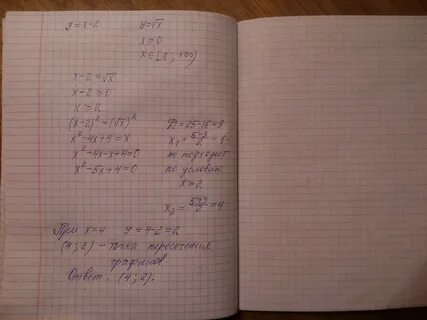 y = x - 2
y = √x
x ≥ 0
x ∈ [0; +∞)
x - 2 = √x
x - 2 ≥ 0
x ≥ 2
(x-2)² = (√x)²
x² - 4x + 4 = x
x² - 4x - x + 4 = 0
x² - 5x + 4 = 0
D = 25 - 16 = 9
x₁ = (5-3)/2 = 1 -
не подходит
по условию
x ≥ 2
x₂ = (5+3)/2 = 4
При x = 4 y = 4 - 2 = 2
(4; 2) - точка пересечения
графиков
Ответ: (4; 2).